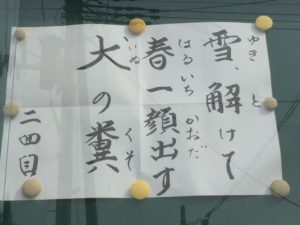 雪、解けて
ゆき と
春一顔出す
はるいち かおだ
犬の糞
いぬ くそ
二四目